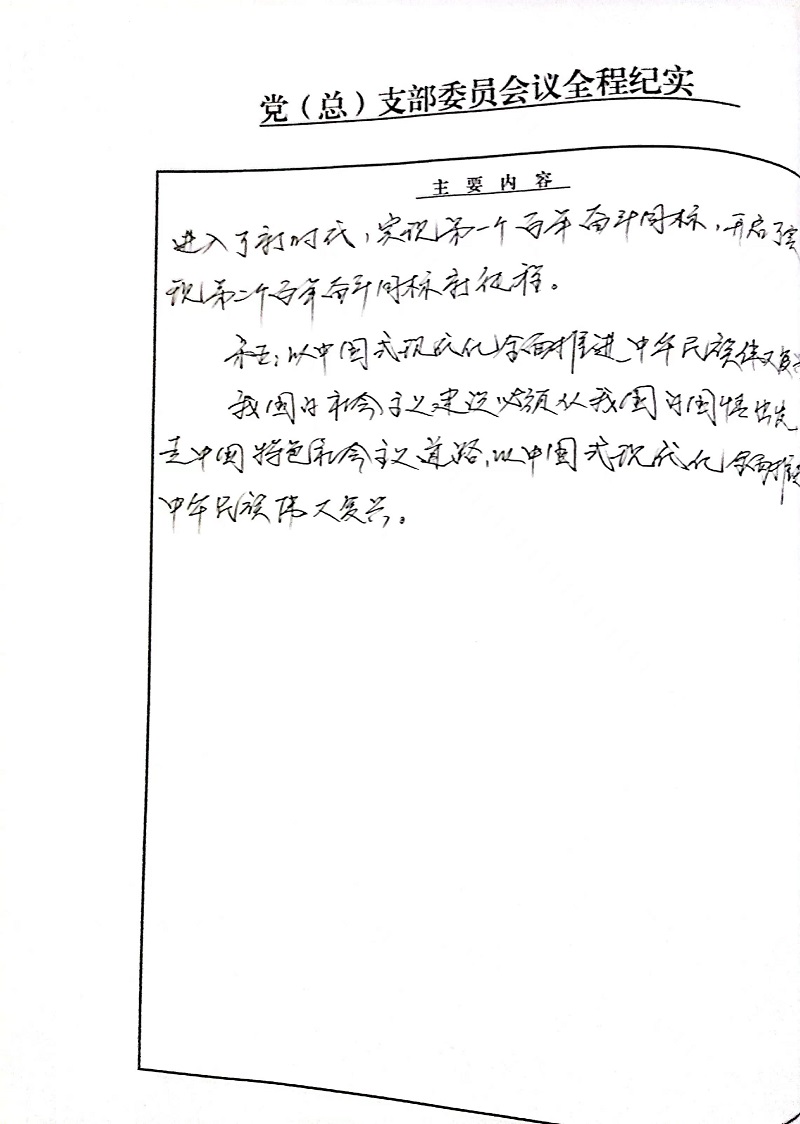 党（总）支部委员会议全程纪实
主要内容
进入了新时代，实现第一个百年奋斗目标，开启了实
现第二个百年奋斗目标新征程。
以中国式现代化全面推进中华民族伟大复兴
我国的社会主义建设必须从我国的国情出发
走中国特色社会主义道路，以中国式现代化全面推进
中华民族伟大复兴。